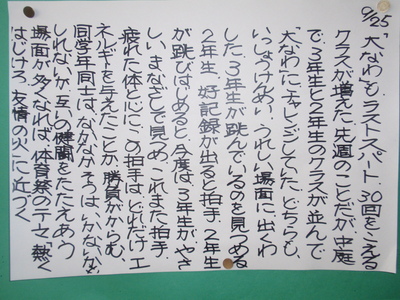 9/25
「大なわ」も、ラストスパート。30回をこえる
クラスが増えた。先週のことだが、中庭
で、3年生と2年生のクラスが並んで
「大なわ」にチャレンジしていた。どちらも、
いっしょうけんめい。うれしい場面に出くわ
した。3年生が跳んでいるのを見つめる
2年生、好記録が出ると拍手、2年生
が跳びはじめると今度は、3年生がやさ
しいまなざしで見つめ、これまた拍手。
疲れた体と心に、この拍手は、どれだけエ
ネルギーを与えたことか。勝負がからむ、
同学年同士は、なかなかそうは、いかないかも
しれないが、互いの健闘をたたえあう
場面が多くなれば、体育祭のテーマ「熱く
はじけろ、友情の火」に近づく。